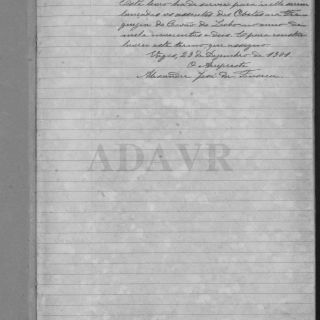 Este livro ha de servir para n'elle serem
lançados os assentos dos Obitos na fre-
guezia do Covão do Lobo no anno de
mil novecentos e dois. E para constar
lavrei este termo que assigno.
Vagos, 23 de Dezembro de 1901.
O
Alexandre José da Fonseca
ADAVR